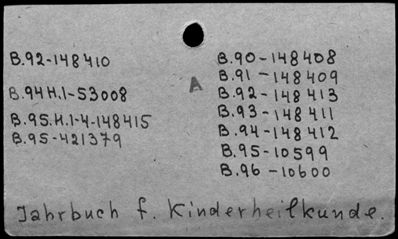 B.92-148410
B.94H.1-53008
B.95.H.1-4-148415
B.95-421379
A
B.90-148408
B.91-148409
B.92-148413
B.93-148411
B.94-148412
B.95-10599
B.96-10600
Jahrbuch f. Kinderheilkunde.